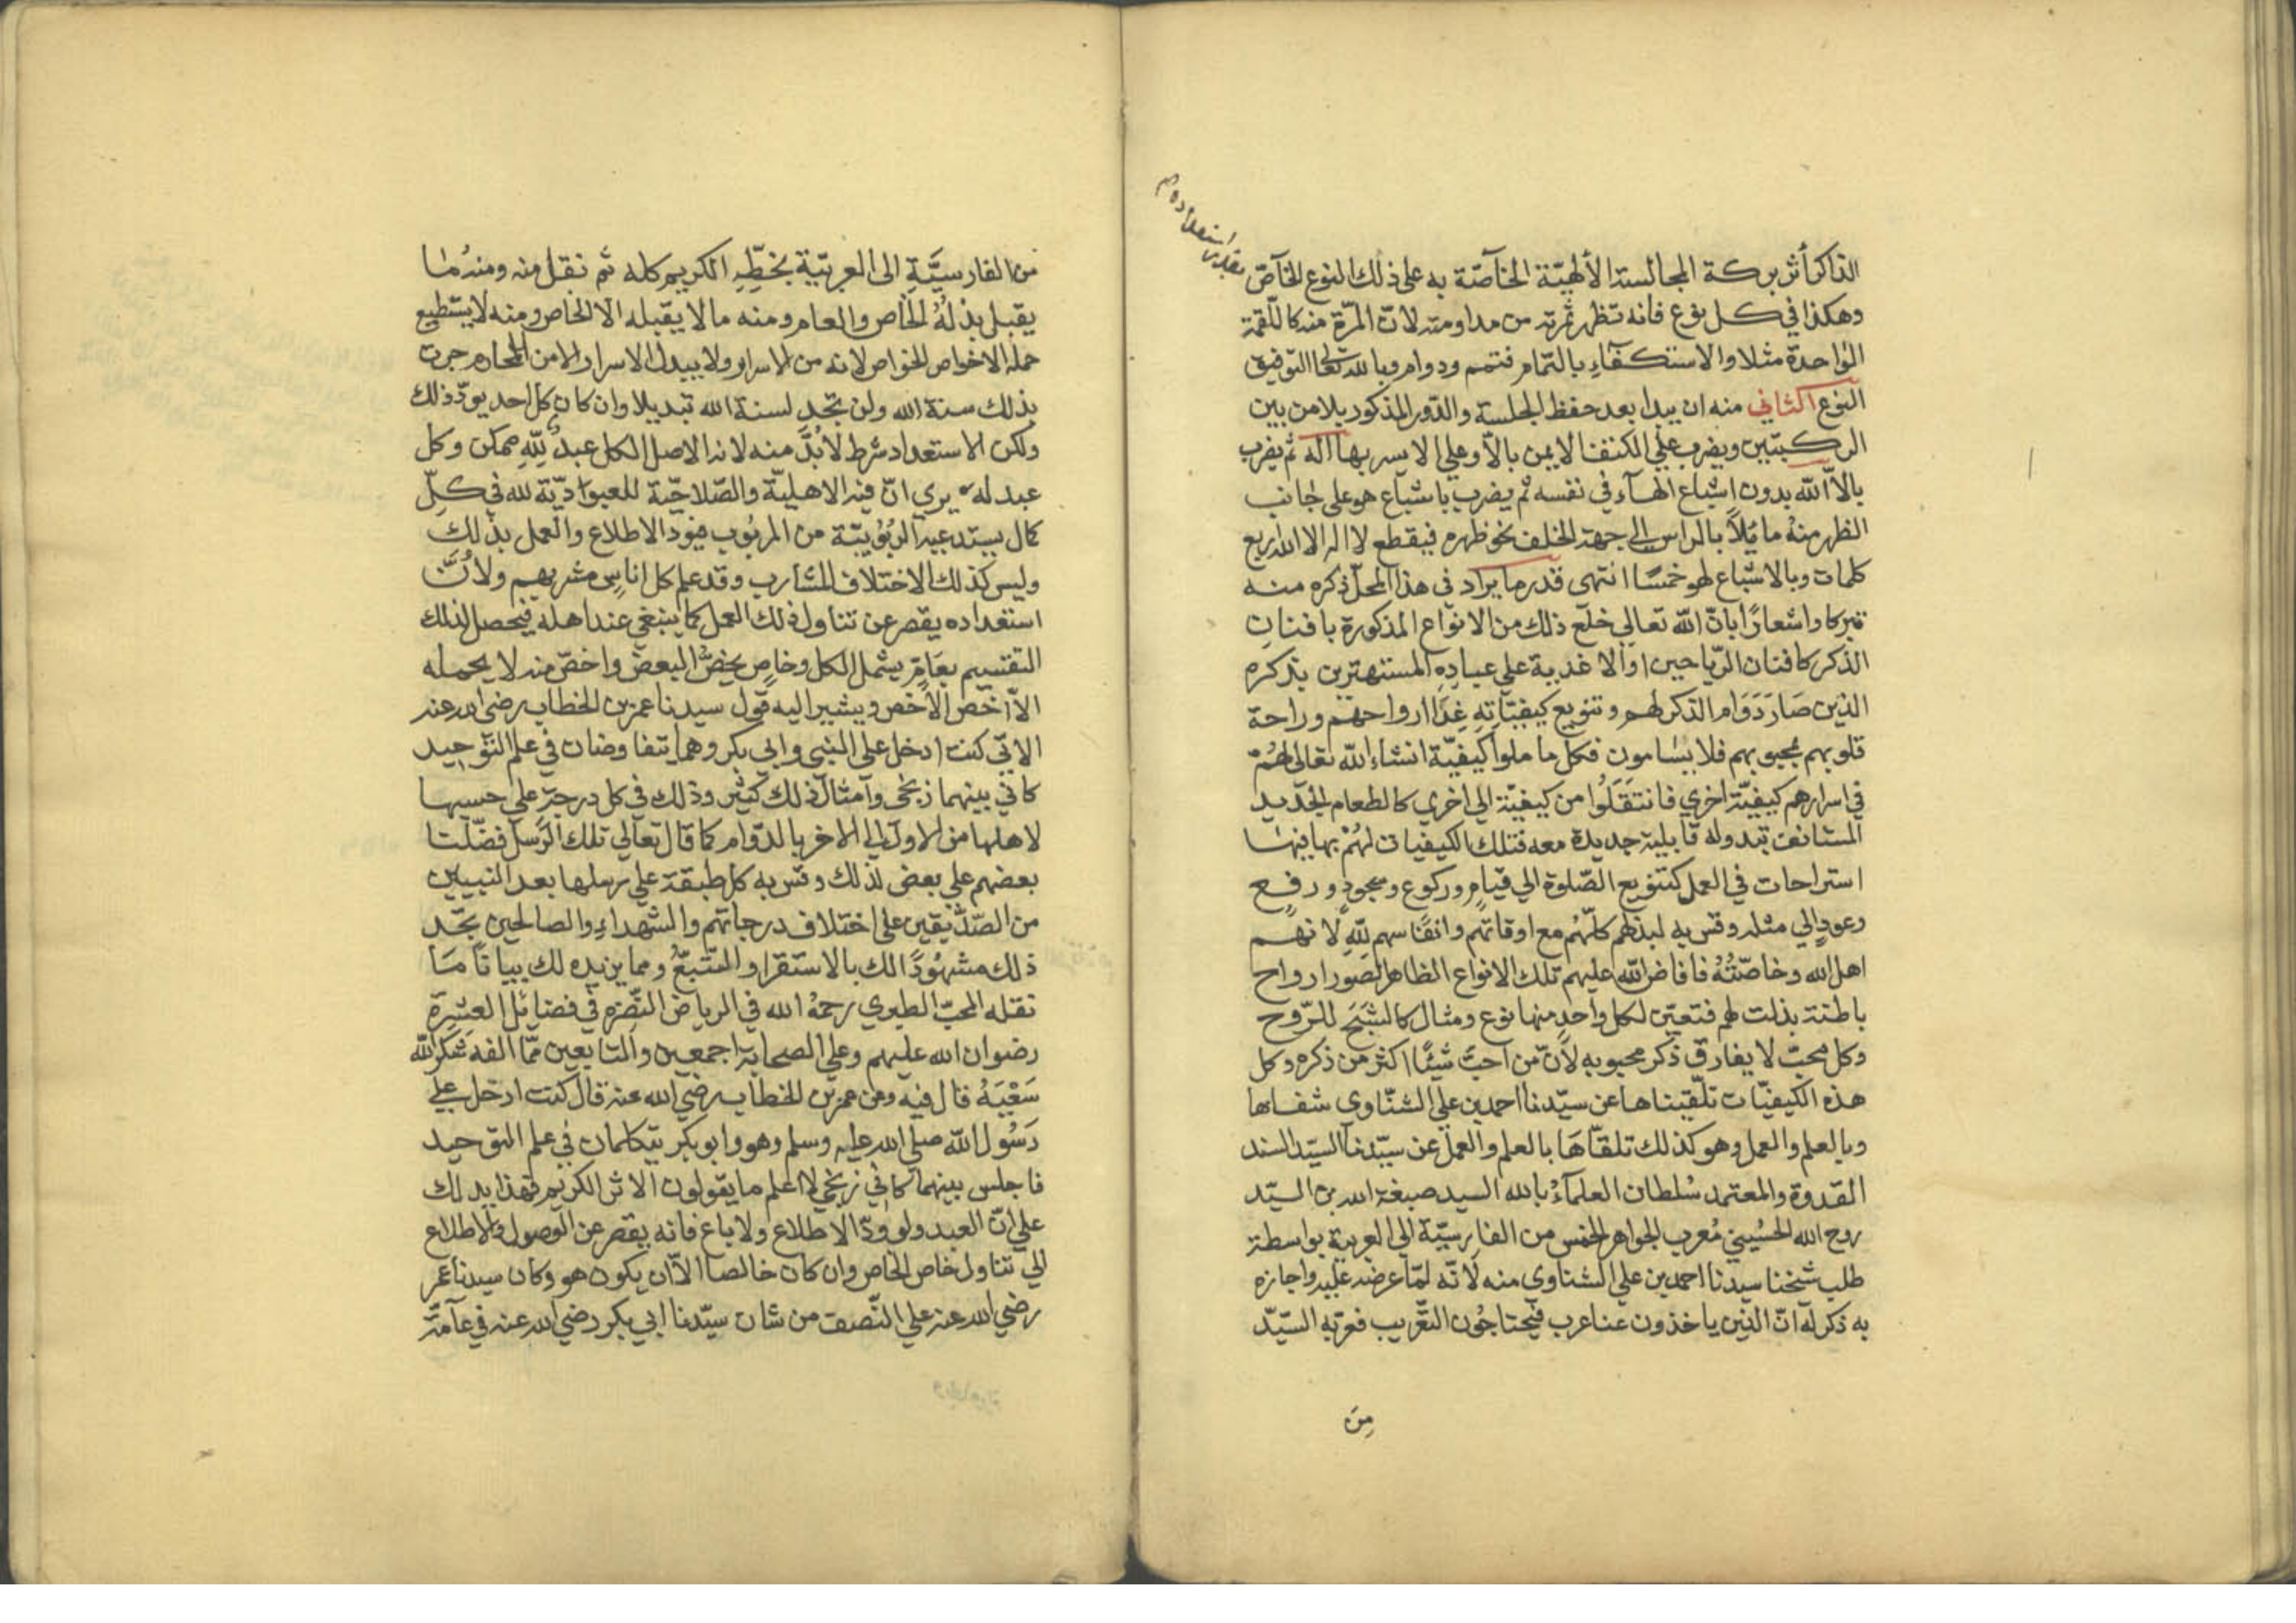 الذاكر أثر بركة المجالسة الألهيّة الخآصّة به على ذلك النوع الخآصّ
بقدر استعداده
وهكذا في كل نوع فانه تظهر ثمرته من مداومته لانّ المرّة منه كاللّقمة
الواحدة مثلا والاستكفآء بالتمام فتمم ودوام وبالله تعالى التوفيق
النوع الثاني منه ان يبدا بعد حفظ الجلسة والدّور المذكور بلا من بين
الركبتين ويضرب علي الكتف الايمن بالاّ وعلي الايسر بها اله ثم يضرب
بالاّ الله بدون اشباع الهآء في نفسه ثم يضرب باشباع هو على جانب
الظهر منهُ مايُلاً بالراس الي جهة الخلف نحو ظهره فيقطع لا اله الا الله اربع
كلمات وبالاشباع لهو خمسًا انتهى قدر ما يراد في هذا المحل ذكره منه
تبركا واشعارًا بانّ الله تعالي خلع ذلك من الانواع المذكورة بافنان
الذكر كافنان الرّياحين او الاغذية علي عبادِهِ المستهترين بذكره
الذين صَارَ دَوَام الذكر لهم وتنويع كيفيّاتِهِ غِذا ارواحهم وراحة
قلوبهم بمحبوبهم فلا يسامون فكل ما ملوا كيفيّة انشاء الله تعالى لهُمْ
في اسرارهم كيفيّة اخري فانتقَلُوا من كيفيّة الي اخري كالطعام الجديد
المستانف تبدو له قابلية جديدة معه فتلك الكيفيات لهُمْ بها فيها
استراحات في العمل كتنويع الصّلوة الي قيامٍ وركوع وسجودٍ ورفع
وعودٍ الي مثله وقس به لبذلهم كلّهُم مع اوقاتهم وانفاسهم لِلّهِ لانهم
اهل الله وخاصّتُهُ فافاض الله عليهم تلك الانواع الظاهر لصورا رواح
باطنة بذلت لهم فتعيّن لكل واحدٍ منها نوع ومثال كالشبَح للرّوح
وكل محبّ لا يفارق ذكر محبوبه لأنّ من احبّ شيئًا اكثر من ذكره وكل
هذه الكيفيّات تلقّيناها عن سيّدنا احمد بن علي الشنّاوي شفاها
وبالعلم والعمل وهو كذلك تلقاهَا بالعلم والعمل عن سيّدنا السيّد السند
القدوة والمعتمد سُلطان العلمآءُ بالله السيد صبغة الله بن السيّد
روح الله الحُسيني مُعرب الجواهر الخمس من الفارسيّة الي العربية بواسطة
طلب شيخنا سيدنا احمد بن علي الشناوي منه لأنه لمّا عرضه عليه واجازه
به ذكر له انّ الذين ياخذون عنا عرب فيحتاجُون التعّريب فعرّبه السيّد
مِنَ
من الفارسيَّةِ الى العربيّة بخطِّهِ الكريم كله ثم نقل منه ومنهُ مٰا
يقبل بذلهُ الخاص والعام ومنه ما لا يقبله الا الخاص ومنه لا يستطيع
حمله الاخواص الخواص لانه من الاسرار ولا يبدل الاسرار الا من المحارم جرت
بذلك سنة الله ولن تجد لسنة الله تبديلا وان كان كل احد يودّ ذلك
ولكن الاستعداد شرط لا بُدَّ منه لانه الاصل الكل عبدٌ لِلّهِ ممكن وكل
عبد له يري انّ فيه الاهليّة والصّلاحيّة للعبوديّة لله في كلّ
كمال يستدعيه الربُوبيّة من المربُوب فيود الاطلاع والعمل بذلك
وليس كذلك الاختلاف المشارب وقد علم كل اناسٍ مشربهم ولأنّ
استعداده يقصر عن تناول ذلك العمل كما ينبغي عند اهله فيحصل لذلك
التقسيم بعَامٍ يشمل الكل وخاصٍ يخصُّ البعض واخصّ منه لا يحمله
الاّ اخص الاخص ويشير اليه قول سيدنا عمر بن الخطاب رضي الله عنه
الاتي كنت ادخل على النبي وابي بكر وهما يتفاوضان في علم التوحيد
كاني بينهما زنجي وامثال ذلك كثير وذلك في كل درجةٍ علي حسبها
لاهلها من الاول الي الاخر بالدّوام كما قال تعالي تلك الرّسل فضّلنا
بعضهم علي بعض لذلك وقس به كل طبقة علي رسلها بعد النبيين
من الصّدّيقين علي اختلاف درجاتهم والشهداءِ والصالحين تجّد
ذلك مشهُودًا لك بالاستقرا والتتبّعُ ومما يزيده لك بيانًا مَا
نقله المحبّ الطبري رحمهُ الله في الرياض النضّرة في فضايل العشرة
رضوان الله عليهم وعلي الصحابة اجمعين والتابعين ممّا الفه شكر الله
سَعْيَهُ قال فيه وعن عمر بن الخطاب رضي الله عنه قال كنت ادخل علي
رَسُول الله صلي الله عليه وسلم وهو وابو بكر يتكلمان في علم التوحيد
فاجلس بينهما كاني زنجي لا اعلم ما يقولون الاثر الكريم فهذا يدلك
علي انّ العبد ولو ودّ الاطلاع ولا باع فانه يقصر عن الوصول والاطلاع
الي تناول خاص الخاص وان كان خالصا الاّ ان يكون هو وكان سيدنا عمر
رضي الله عنه علي النّصف من شان سيّدنا ابي بكر رضي الله عنه في عآمّة